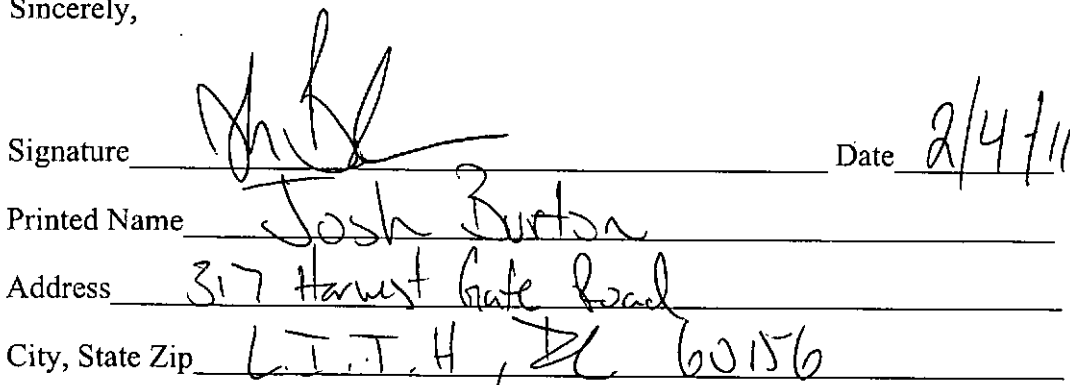 Sincerely,
Signature Date 2/4/11
Printed Name Josh Burton
Address 317 Harvest Gate Road
City, State Zip L.I.T.H, IL 60156